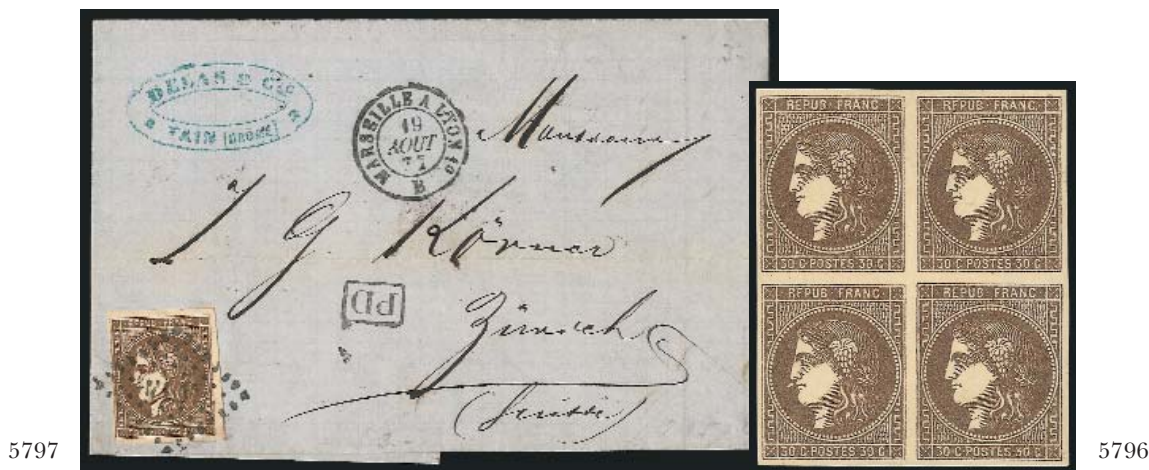 DELAS & Cie
TAIN (DROME)
MARSEILLE A LYON 1o
19
AOUT
71
B
J. G. Körner
PD
Zürich
(Suisse)
REPUB FRANC
30 C POSTES 30 C
REPUB FRANC
30 C POSTES 30 C
REPUB FRANC
30 C POSTES 30 C
REPUB FRANC
30 C POSTES 30 C
5797
5796